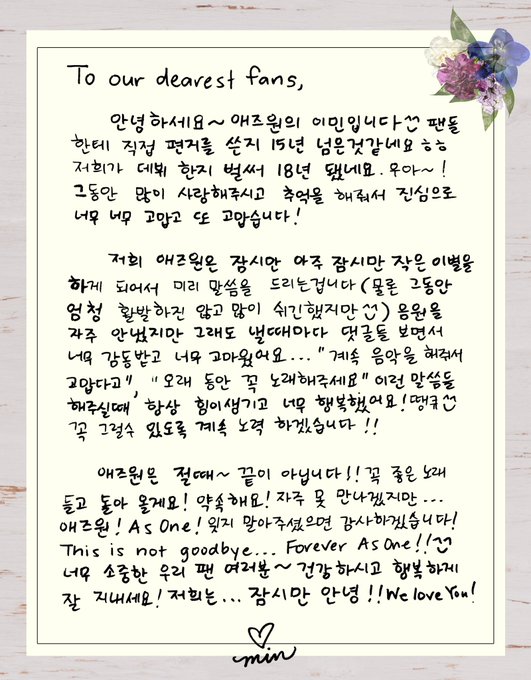 To our dearest fans,
안녕하세요~ 애즈원의 이민입니다^^ 팬들
한테 직접 편거를 쓴지 15년 넘은것같네요 ㅎㅎ
저희가 데뷔 한지 벌써 18년 됐네요. 우아~!
그동안 많이 사랑해주시고 추억을 해줘서 진심으로
너무 너무 고맙고 또 고맙습니다!
저희 애즈원은 잠시만 아주 잠시만 작은 이별을
하게 되어서 미리 말씀을 드리는겁니다 (물론 그동안
엄청 활발하진 않고 많이 쉬긴했지만 ^^) 음원을
자주 안냈지만 그래도 낼때마다 댓글들 보면서
너무 감동받고 너무 고마웠어요... "계속 음악을 해줘서
고맙다고", "오래 동안 꼭 노래해주세요" 이런 말씀들
해주실때 항상 힘이생기고 너무 행복했어요! 땡큐^^
꼭 그럴수 있도록 계속 노력 하겠습니다!!
애즈원은 절때~ 끝이 아닙니다!! 꼭 좋은노래
들고 돌아 올게요! 약속해요! 자주 못 만나겠지만...
애즈원! As One! 잊지 말아주셨으면 감사하겠습니다!
This is not goodbye... Forever As One!! ^^
너무 소중한 우리 팬 여러분~ 건강하시고 행복하게
잘 지내세요! 저희는... 잠시만 안녕!! We love You!
♡
min